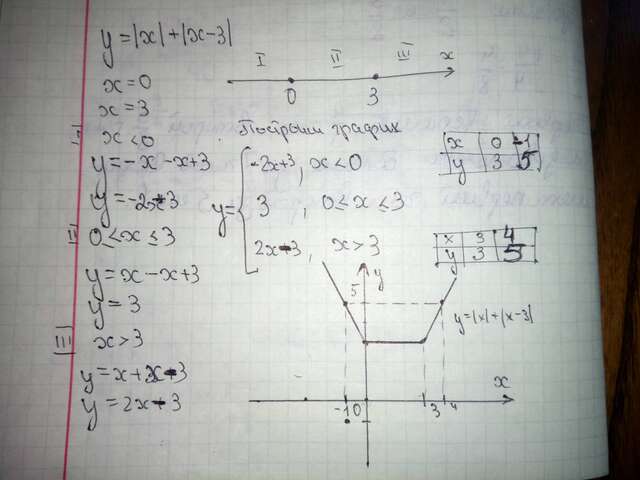 y=|x|+|x-3|
I II III x
x=0
0 3
x=3
I x<0
Построим график
y=-x-x+3
y=-2x+3
II 0≤x≤3
y=x-x+3
y=3
III x>3
y=x+x-3
y=2x-3
y={ -2x+3, x<0
3, 0≤x≤3
2x-3, x>3
x 0 -1
y 3 5
x 3 4
y 3 5
y
5
y=|x|+|x-3|
x
-1 0 3 4